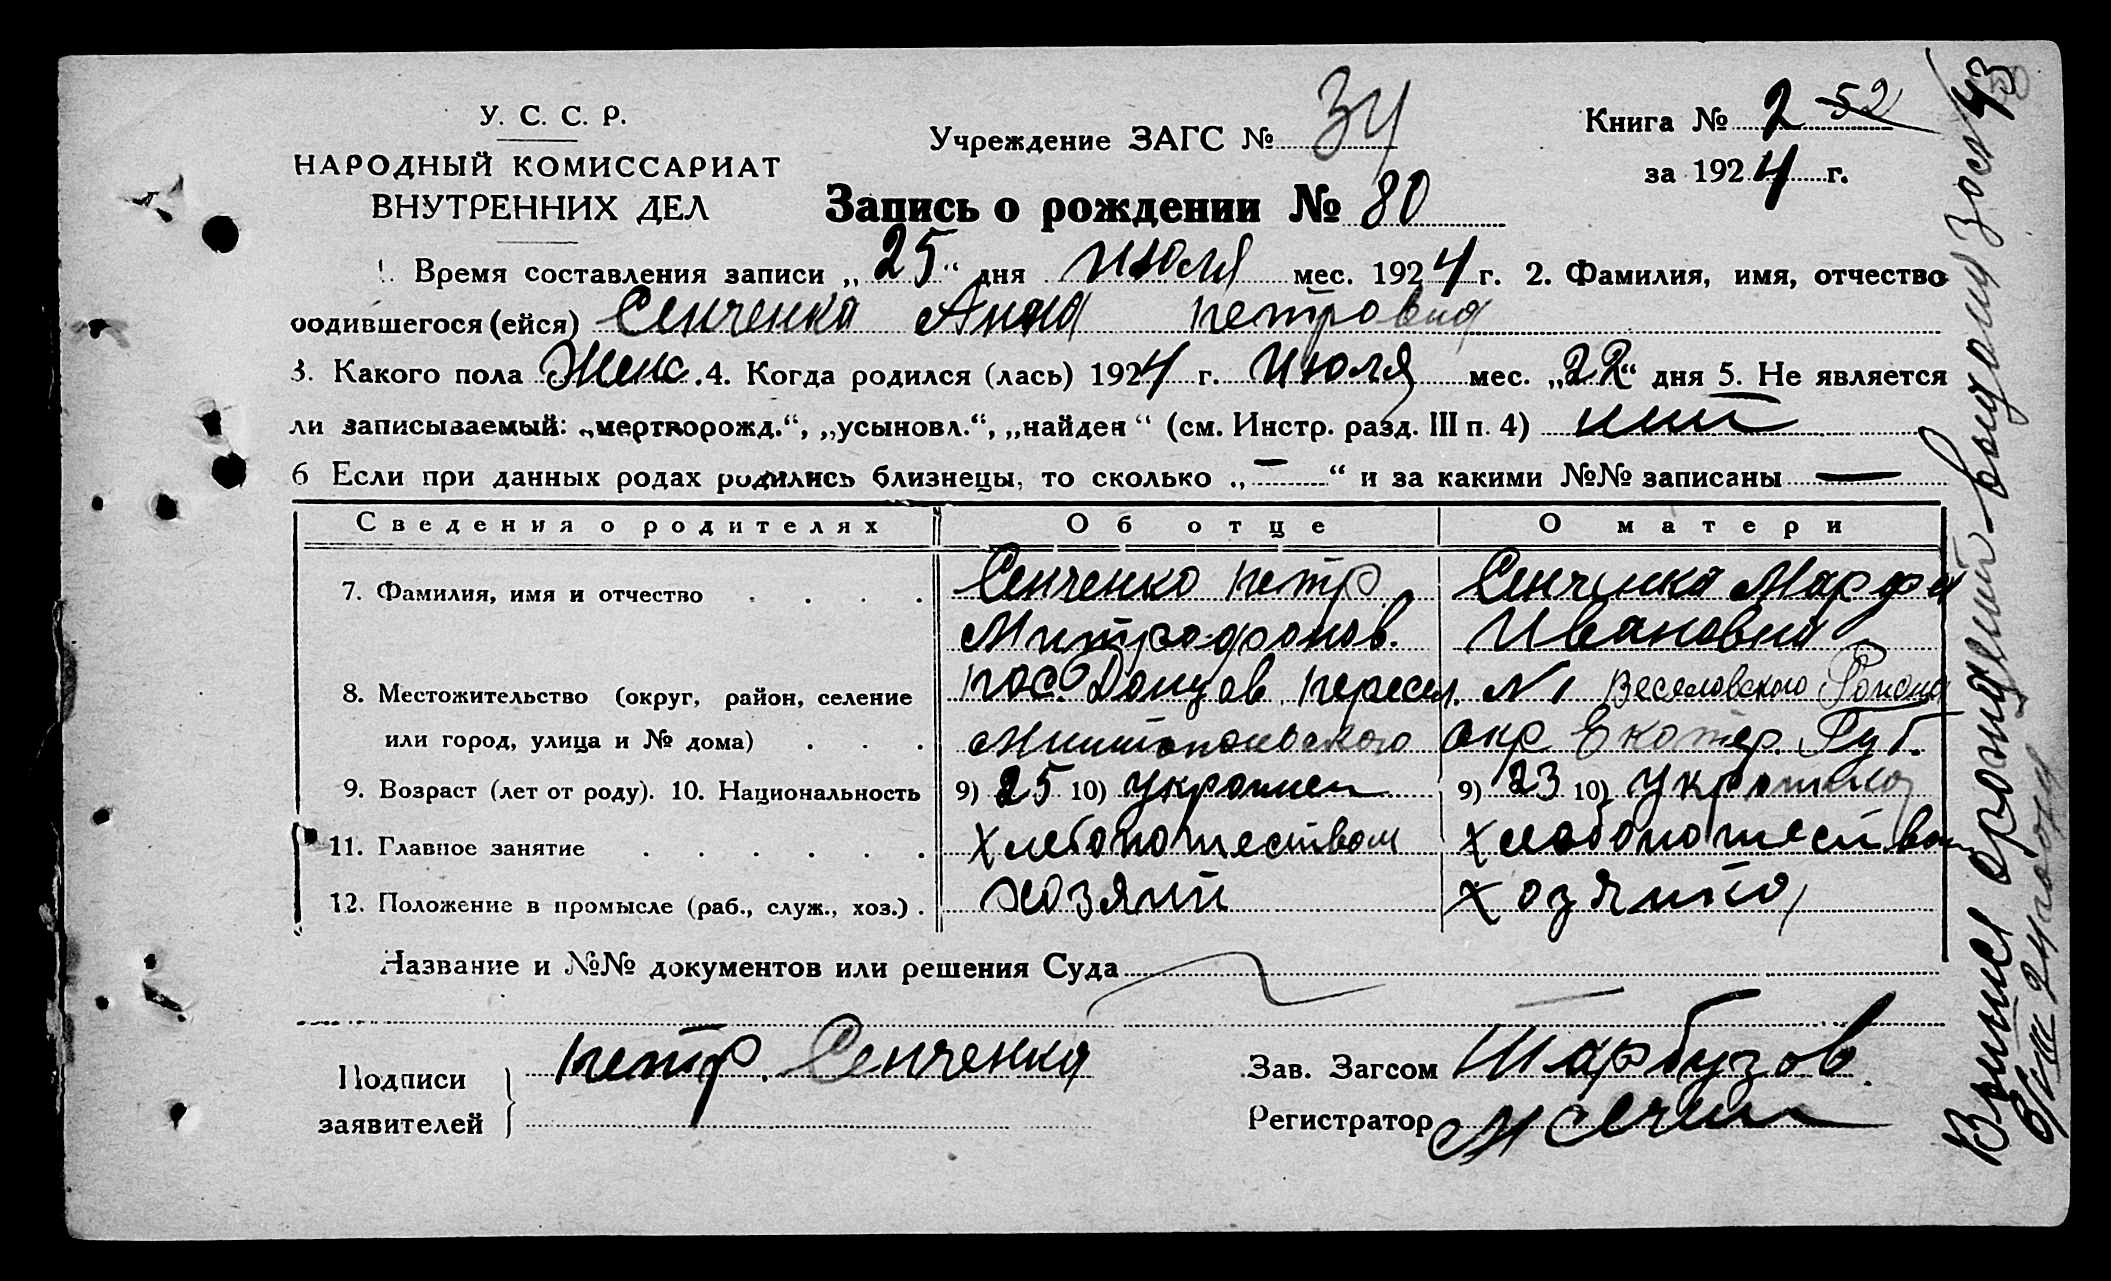 У. С. С. Р.
НАРОДНЫЙ КОМИССАРИАТ
ВНУТРЕННИХ ДЕЛ
Учреждение ЗАГС № 34
Книга № 2 52
за 1924 г.
Запись о рождении № 80
1. Время составления записи „25“ дня Июля мес. 1924 г. 2. Фамилия, имя, отчество
родившегося (ейся) Сенченка Анна Петровна
3. Какого пола Женс. 4. Когда родился (лась) 1924 г. Июля мес. „22“ дня 5. Не является
ли записываемый: „мертворожд.“, „усыновл.“, „найден“ (см. Инстр. разд. III п. 4)
6 Если при данных родах родились близнецы, то сколько „—“ и за какими №№ записаны —
Сведения о родителях Об отце О матери
7. Фамилия, имя и отчество Сенченко Петр Сенченка Марфа
Митрофонов. Ивановна
8. Местожительство (округ, район, селение пос. Донцов пересел. №1 Веселовского Района
или город, улица и № дома) окр Екатер. Губ.
9. Возраст (лет от роду). 10. Национальность 9) 25 10) Украинец 9) 23 10) Украинка
11. Главное занятие хлебопашеством хлебопашеством
12. Положение в промысле (раб., служ., хоз.) хозяин хозяйка
Название и №№ документов или решения Суда
Подписи Петр Сенченка
заявителей
Зав. Загсом
Регистратор